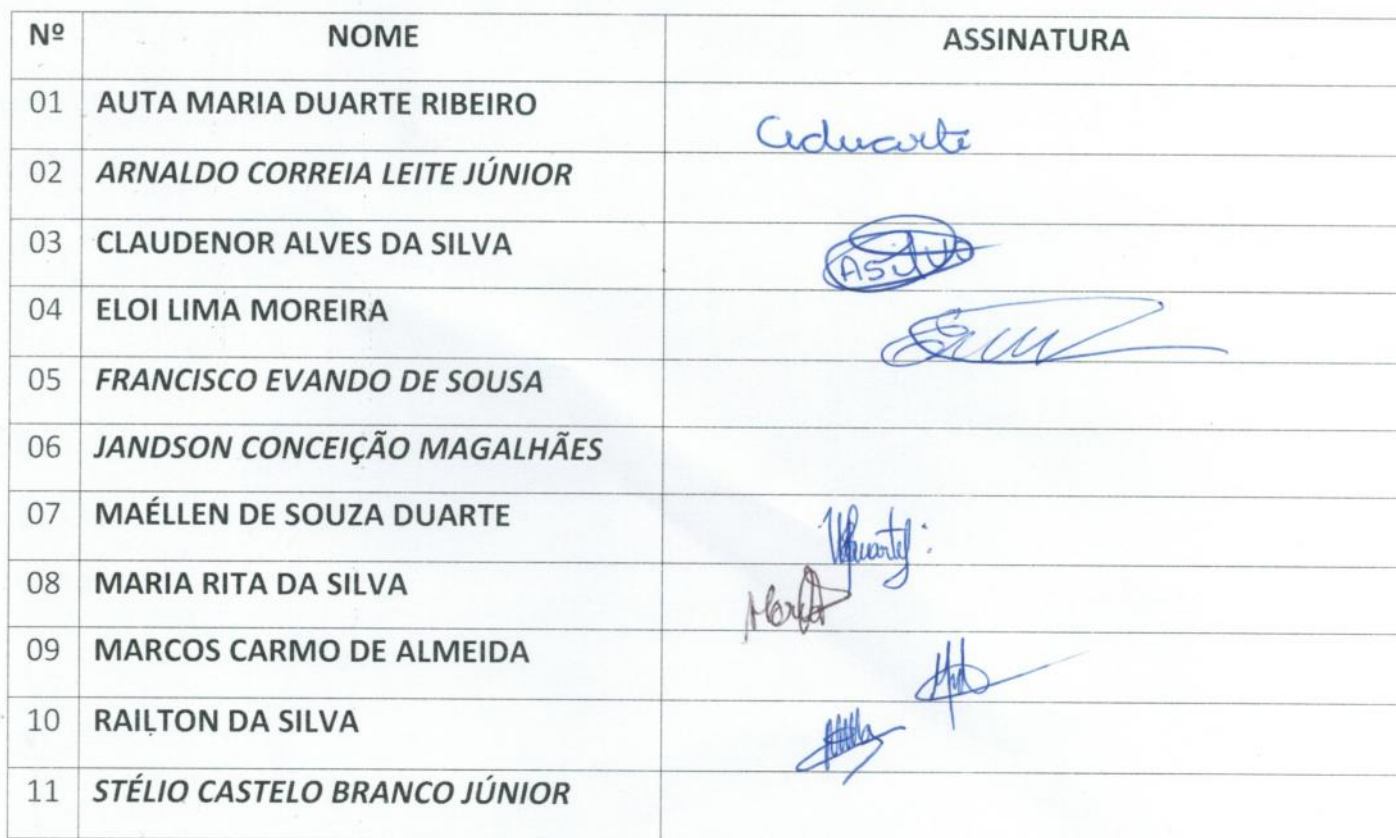 Nº NOME ASSINATURA
01 AUTA MARIA DUARTE RIBEIRO
02 ARNALDO CORREIA LEITE JÚNIOR
03 CLAUDENOR ALVES DA SILVA ASilva
04 ELOI LIMA MOREIRA
05 FRANCISCO EVANDO DE SOUSA
06 JANDSON CONCEIÇÃO MAGALHÃES
07 MAÉLLEN DE SOUZA DUARTE
08 MARIA RITA DA SILVA
09 MARCOS CARMO DE ALMEIDA
10 RAILTON DA SILVA
11 STÉLIO CASTELO BRANCO JÚNIOR